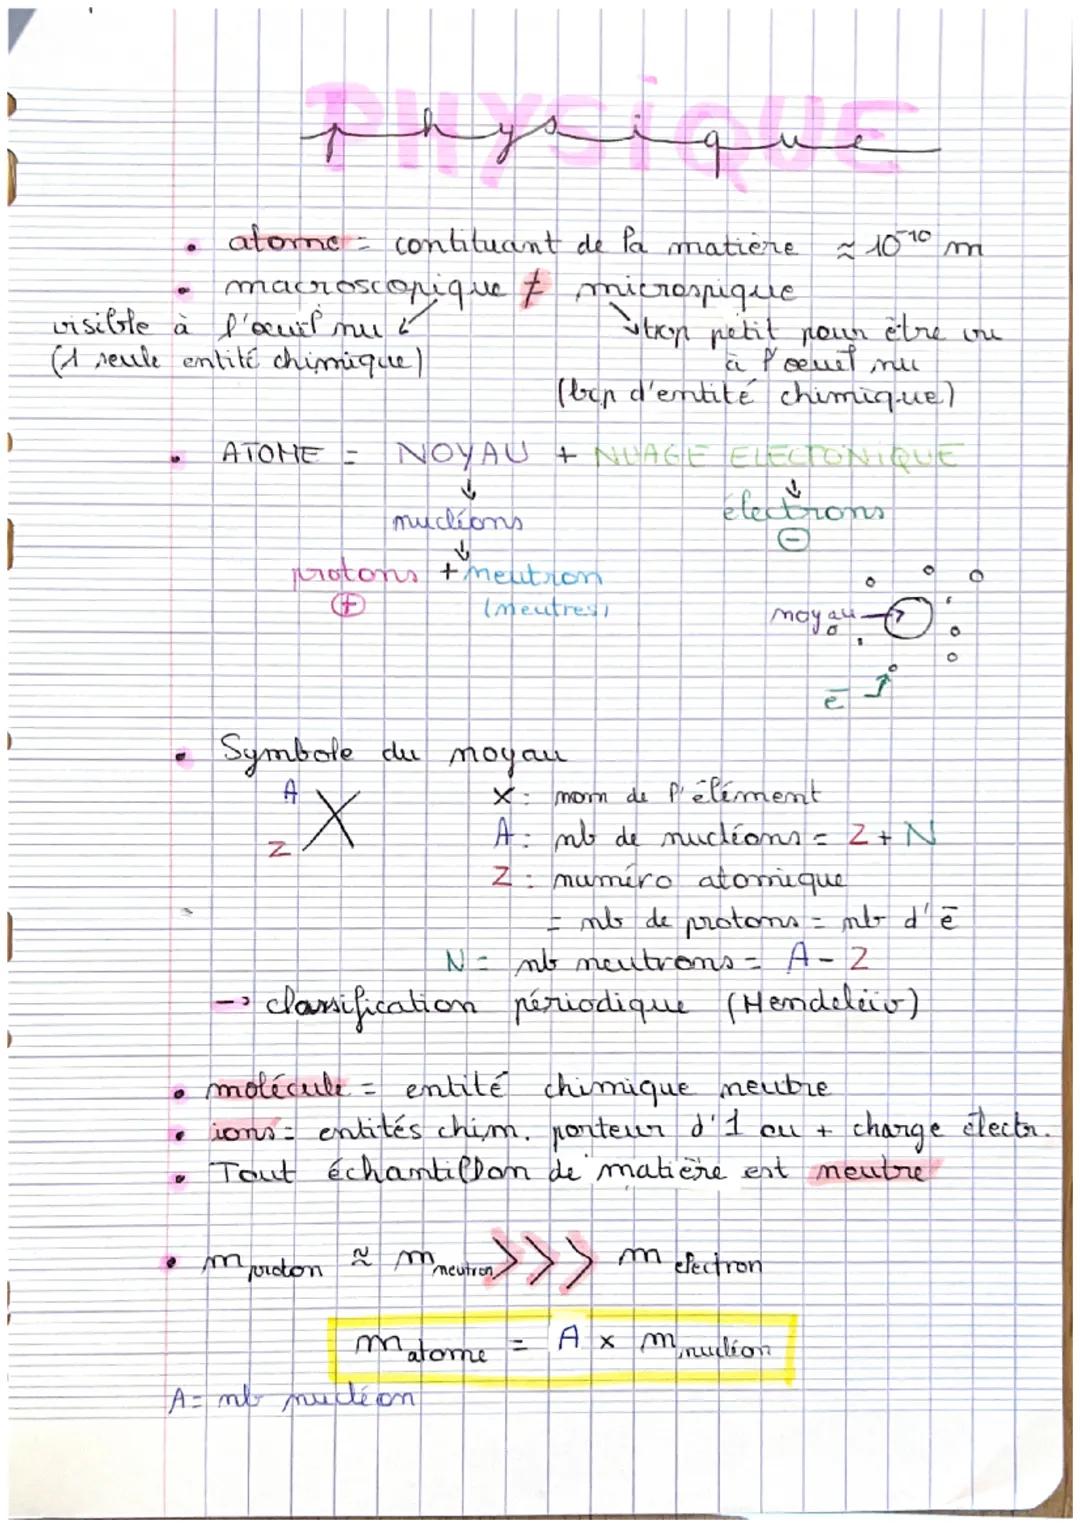 PHYSIQUE
physique
• atome = contituant de la matière ≈ 10⁻¹⁰ m
• macroscopique ≠ microspique
visible à l'oeuil nu
(1 seule entité chimique)
trop petit pour être vu
à l'oeuil nu
(bcp d'entité chimique)
• ATOME = NOYAU + NUAGE ELECTONIQUE
↓ ↓
nucléons électrons
↓ ⊖
protons + neutron
⊕ (neutres)
noyau →
e⁻
• Symbole du noyau
A
X
Z
X : nom de l'élément
A : nb de nucléons = Z + N
Z : numéro atomique
= nb de protons = nb d'e⁻
N = nb neutrons = A - Z
→ classification périodique (Mendeleiv)
• molécule = entité chimique neutre
• ions = entités chim. porteur d'1 ou + charge électr.
• Tout échantillon de matière est neutre
• m proton ≈ m neutron >>> m electron
m atome = A × m nucléon
A = nb nucléon